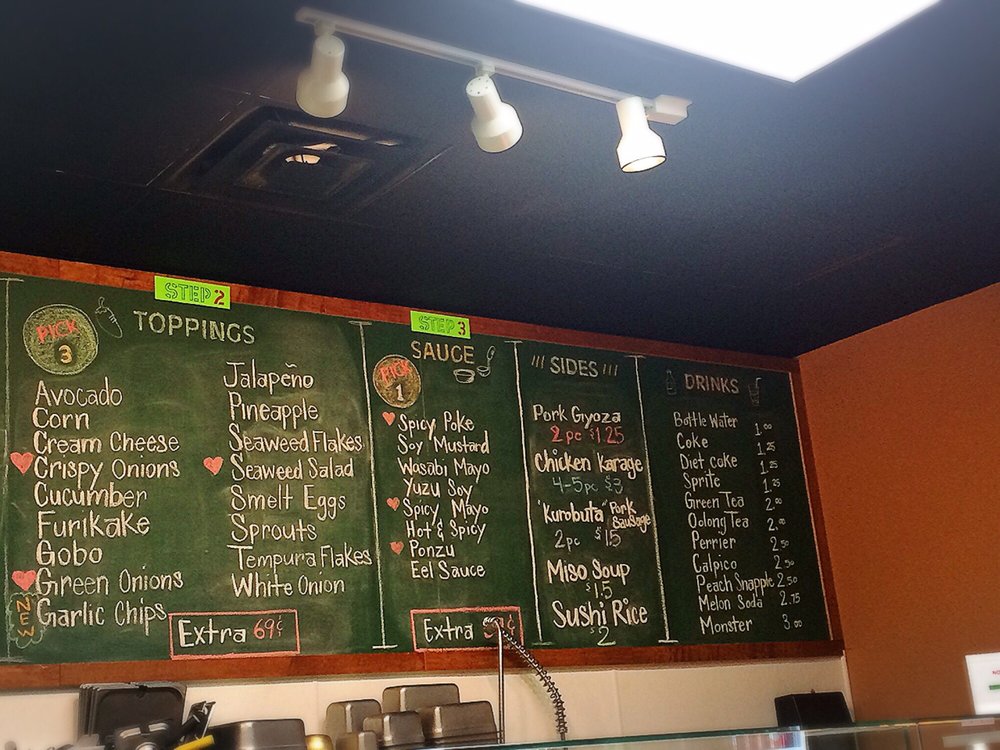 STEP 2
PICK
3
TOPPINGS
Avocado
Corn
Cream Cheese
Crispy Onions
Cucumber
Furikake
Gobo
Green Onions
NEW
Garlic Chips
Jalapeño
Pineapple
Seaweed Flakes
Seaweed Salad
Smelt Eggs
Sprouts
Tempura Flakes
White Onion
Extra 69¢
STEP 3
SAUCE
PICK
1
Spicy Poke
Soy Mustard
Wasabi Mayo
Yuzu Soy
Spicy Mayo
Hot & Spicy
Ponzu
Eel Sauce
Extra
SIDES
Pork Gyoza
2 pc $1.25
Chicken Karage
4-5 pc $3
"Kurobuta" Pork Sausage
2pc $1.5
Miso Soup
$1.5
Sushi Rice
2
DRINKS
Bottle Water 1.00
Coke 1.25
Diet coke 1.25
Sprite 1.25
Green Tea 2.00
Oolong Tea 2.00
Perrier 2.50
Calpico 2.50
Peach Snapple 2.50
Melon Soda 2.75
Monster 3.00